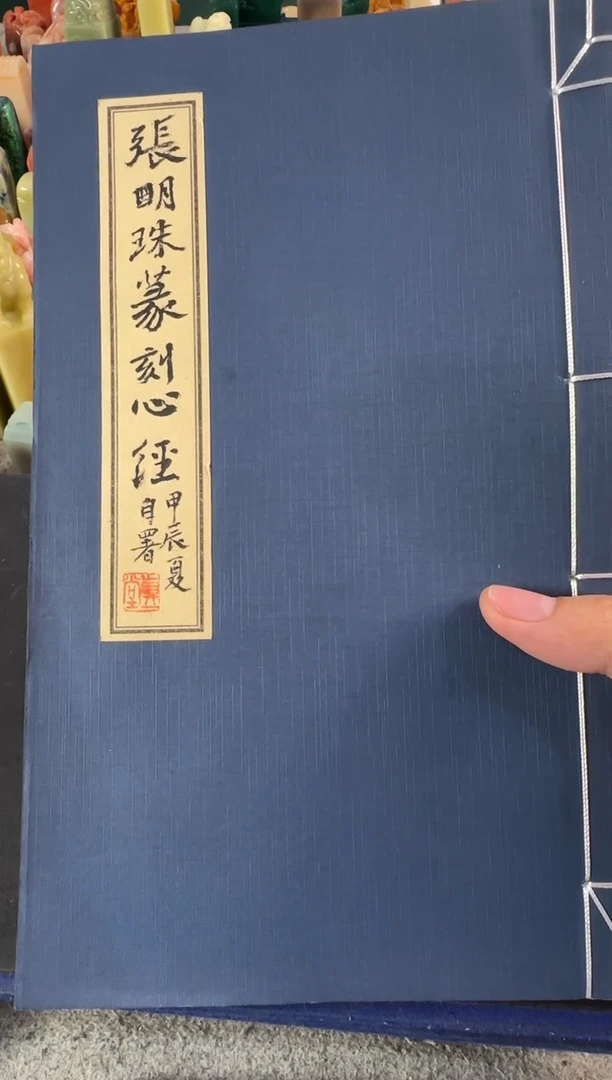 張明珠篆刻心經
甲辰夏
自署